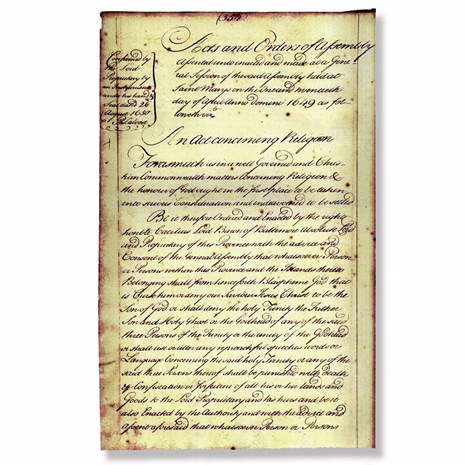 (354)
Confirmed by
the Lord
Proprietary by
an Instrument
under his hand &
Seal dated 26
August 1650
Acts and Orders of Assembly
Assented unto enacted and made at a Gene
ral Session of the said Assembly held at
Saint Maryes on the one and
day of April Anno Domini 1649 as fol
loweth vizt
An Act concerning Religion
Forasmuch as in a well Governed and Chris
tian Commonwealth matters Concerning Religion &
the honour of God ought in the first place to be taken
into serious Consideration and endeavoured to be settled
Be it therefore Ordered and Enacted by the right
honble Caecilius Lord Baron of Baltimore absolute Lord
and Proprietary of this Province with the advice and
Consent of this General Assembly that whatsoever Person
or Persons within this Province and the Islands thereto
Belonging shall from henceforth Blaspheme God that
is Curse him or deny our Saviour Jesus Christ to be the
Son of God or shall deny the holy Trinity the Father
Son and Holy Ghost or the Godhead of any of the said
three Persons of the Trinity or the unity of the Godhead
or shall use or utter any reproachful speeches words or
Language Concerning the said holy Trinity or any of the
said three Persons thereof shall be punished with Death
& Confiscation or forfeiture of all his or her lands and
Goods to the Lord Proprietary and his heirs and be it
also Enacted by the Authority and with the advice and
assent aforesaid that whatsoever Person or Persons